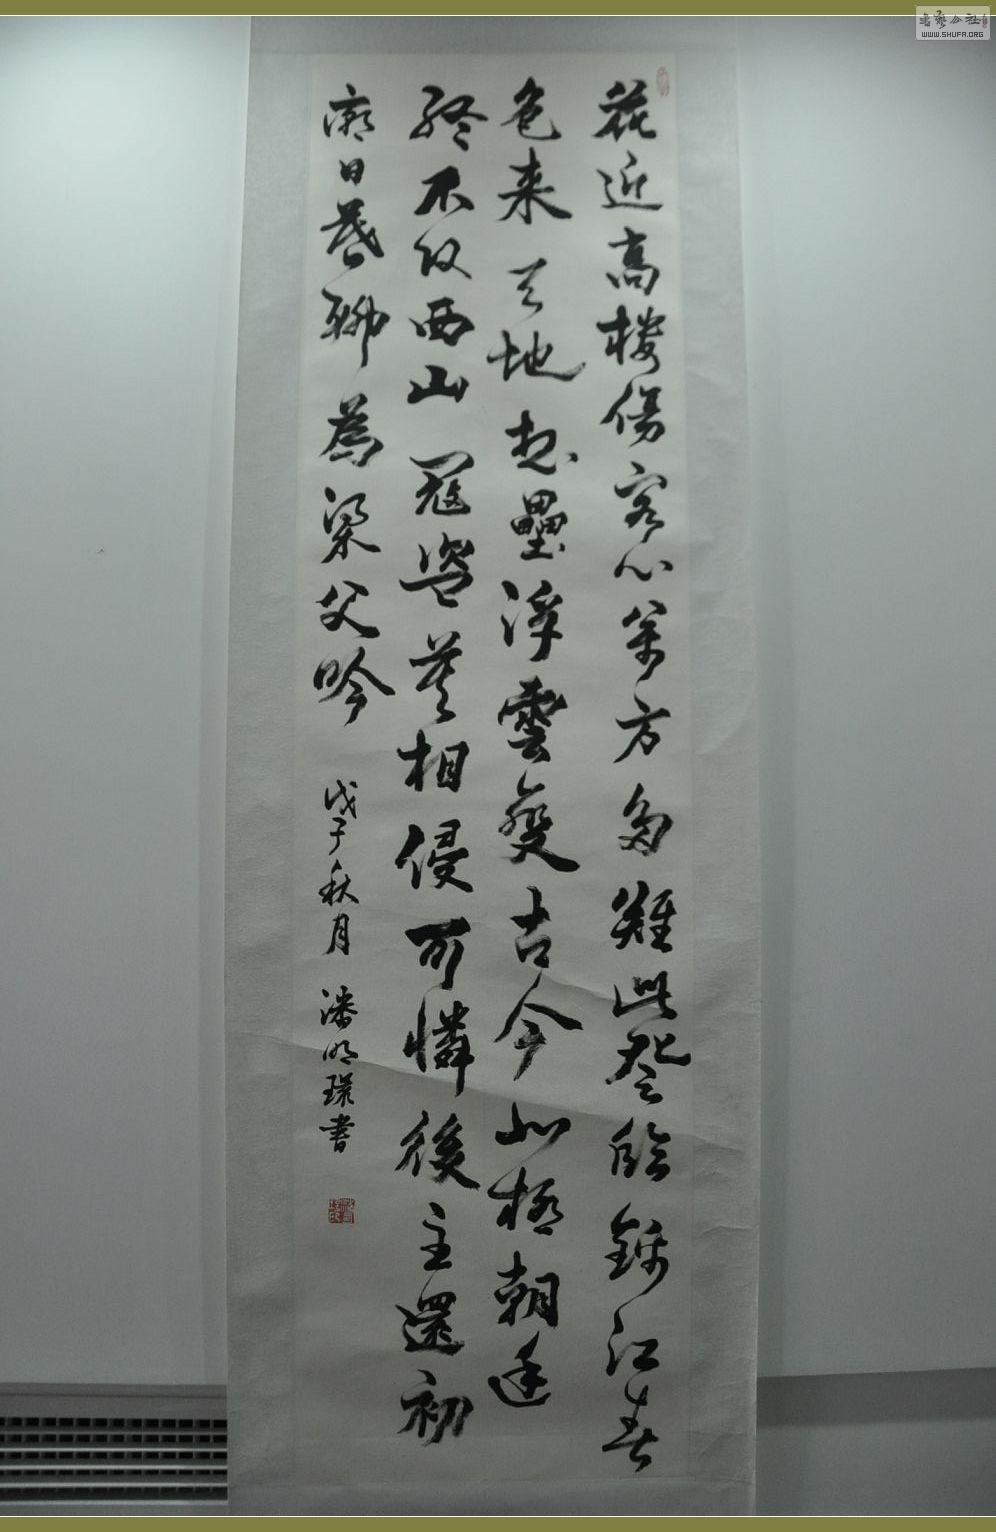 花近高樓傷客心萬方多難此登臨錦江春
色来天地玉壘浮雲變古今北極朝廷
終不改西山寇盗莫相侵可憐後主還祠
廟日暮聊為梁父吟
戊子秋月 潘明書
書藝公社
WWW.SHUFA.ORG